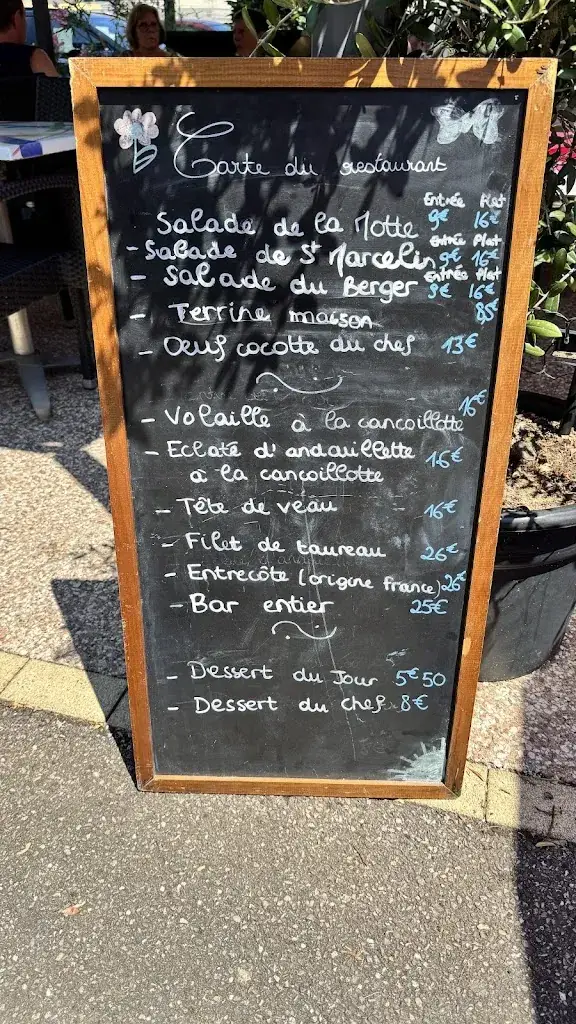 Carte du restaurant
Entrée Plat
Salade de la Motte 9€ 16€
Entrée Plat
- Salade de St Marcelin 9€ 16€
Entrée Plat
- Salade du Berger 9€ 16€
- Terrine maison 8€
- Oeuf cocotte du chef 13€
- Volaille à la cancoillotte 16€
- Eclaté d'andouillette 16€
à la cancoillotte
- Tête de veau 16€
- Filet de taureau 26€
- Entrecôte (origine France) 26€
- Bar entier 25€
- Dessert du Jour 5€50
- Dessert du chef 8€